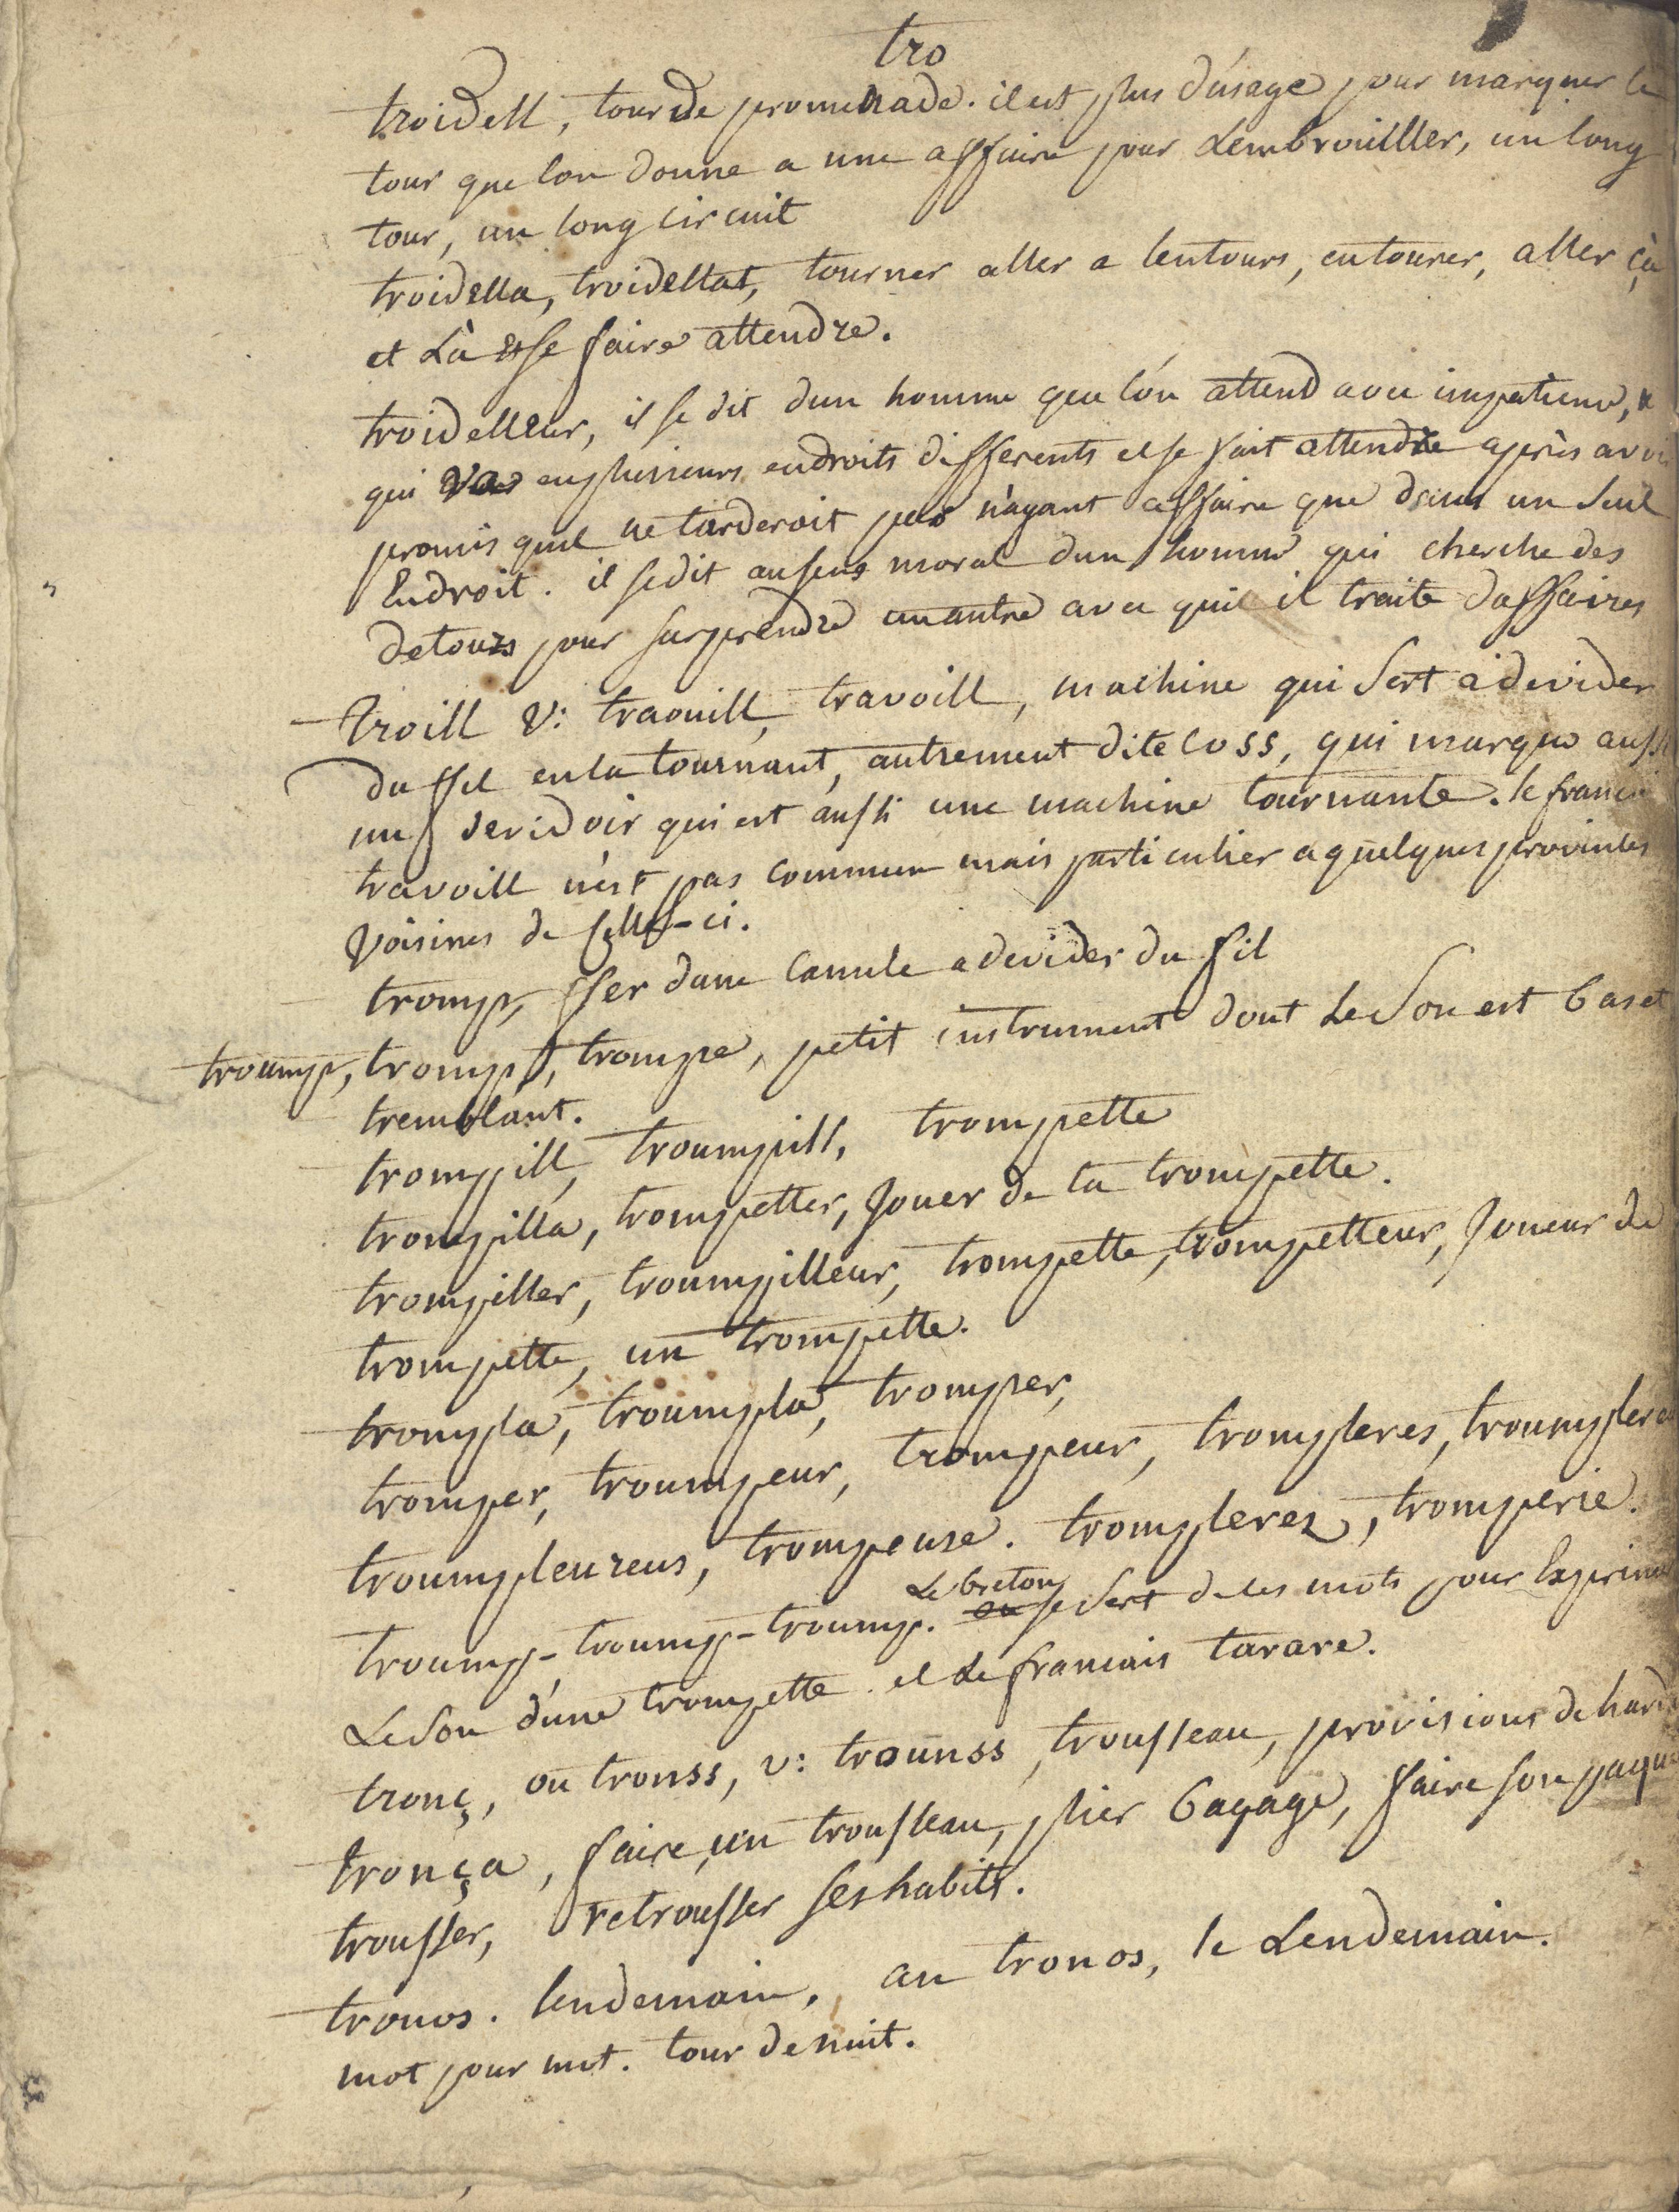 tro
troidell, tour de promenade. il est plus d'usage pour marquer le
tour que lon donne a une affaire pour Lembrouilller, un long
tour, un long circuit
troidella, troidellat, tourner aller a lentours, entourer, aller çà
et Là et se faire attendre.
troidelleur, il se dit dun homme que l'on attend avec impatience,
qui va en plusieurs endroits differents et se fait attendre après avoir
promis quil ne tarderoit pas n'ayant affaire que dans un seul
Endroit. il se dit au sens moral dun homme qui cherche des
detours pour surprendre un autre avec qui il traite daffaires
troill v: traouill, travoill, machine qui sert a devider
du ffil en la tournant, autrement dite coss, qui marque aussi
un devidoir qui est aussi une machine tournante. le francais
travoill n'est pas commun mais particulier a quelques provinces
voisines de celle-ci.
tromp, ffer dune canule a devider du fil
troump, tromp, trompe, petit instrument dont Le son est bas et
tremblant.
trompill, troumpill, trompette
trompilla, trompetter, Jouer de la trompette.
trompiller, troumpilleur, trompette, trompetteur, Joueur de
trompette, un trompette.
trompla, troumpla, tromper,
tromper, troumpeur, trompeur, trompleres, troumpleres
troumpleureus, trompeuse. tromplerez, tromperie.
troump-troump-troump. Le breton se sert de ces mots pour Exprimer
Le son d'une trompette. et Le francais tarare.
tronç, ou tronss, v: trounss, trousseau, provisions de hardes
tronça, faire un trousseau, plier bagage, faire son paquet
trousser, retrousser ses habits.
tronos. lendemain, an tronos, le Lendemain.
mot pour mot. tour de nuit.